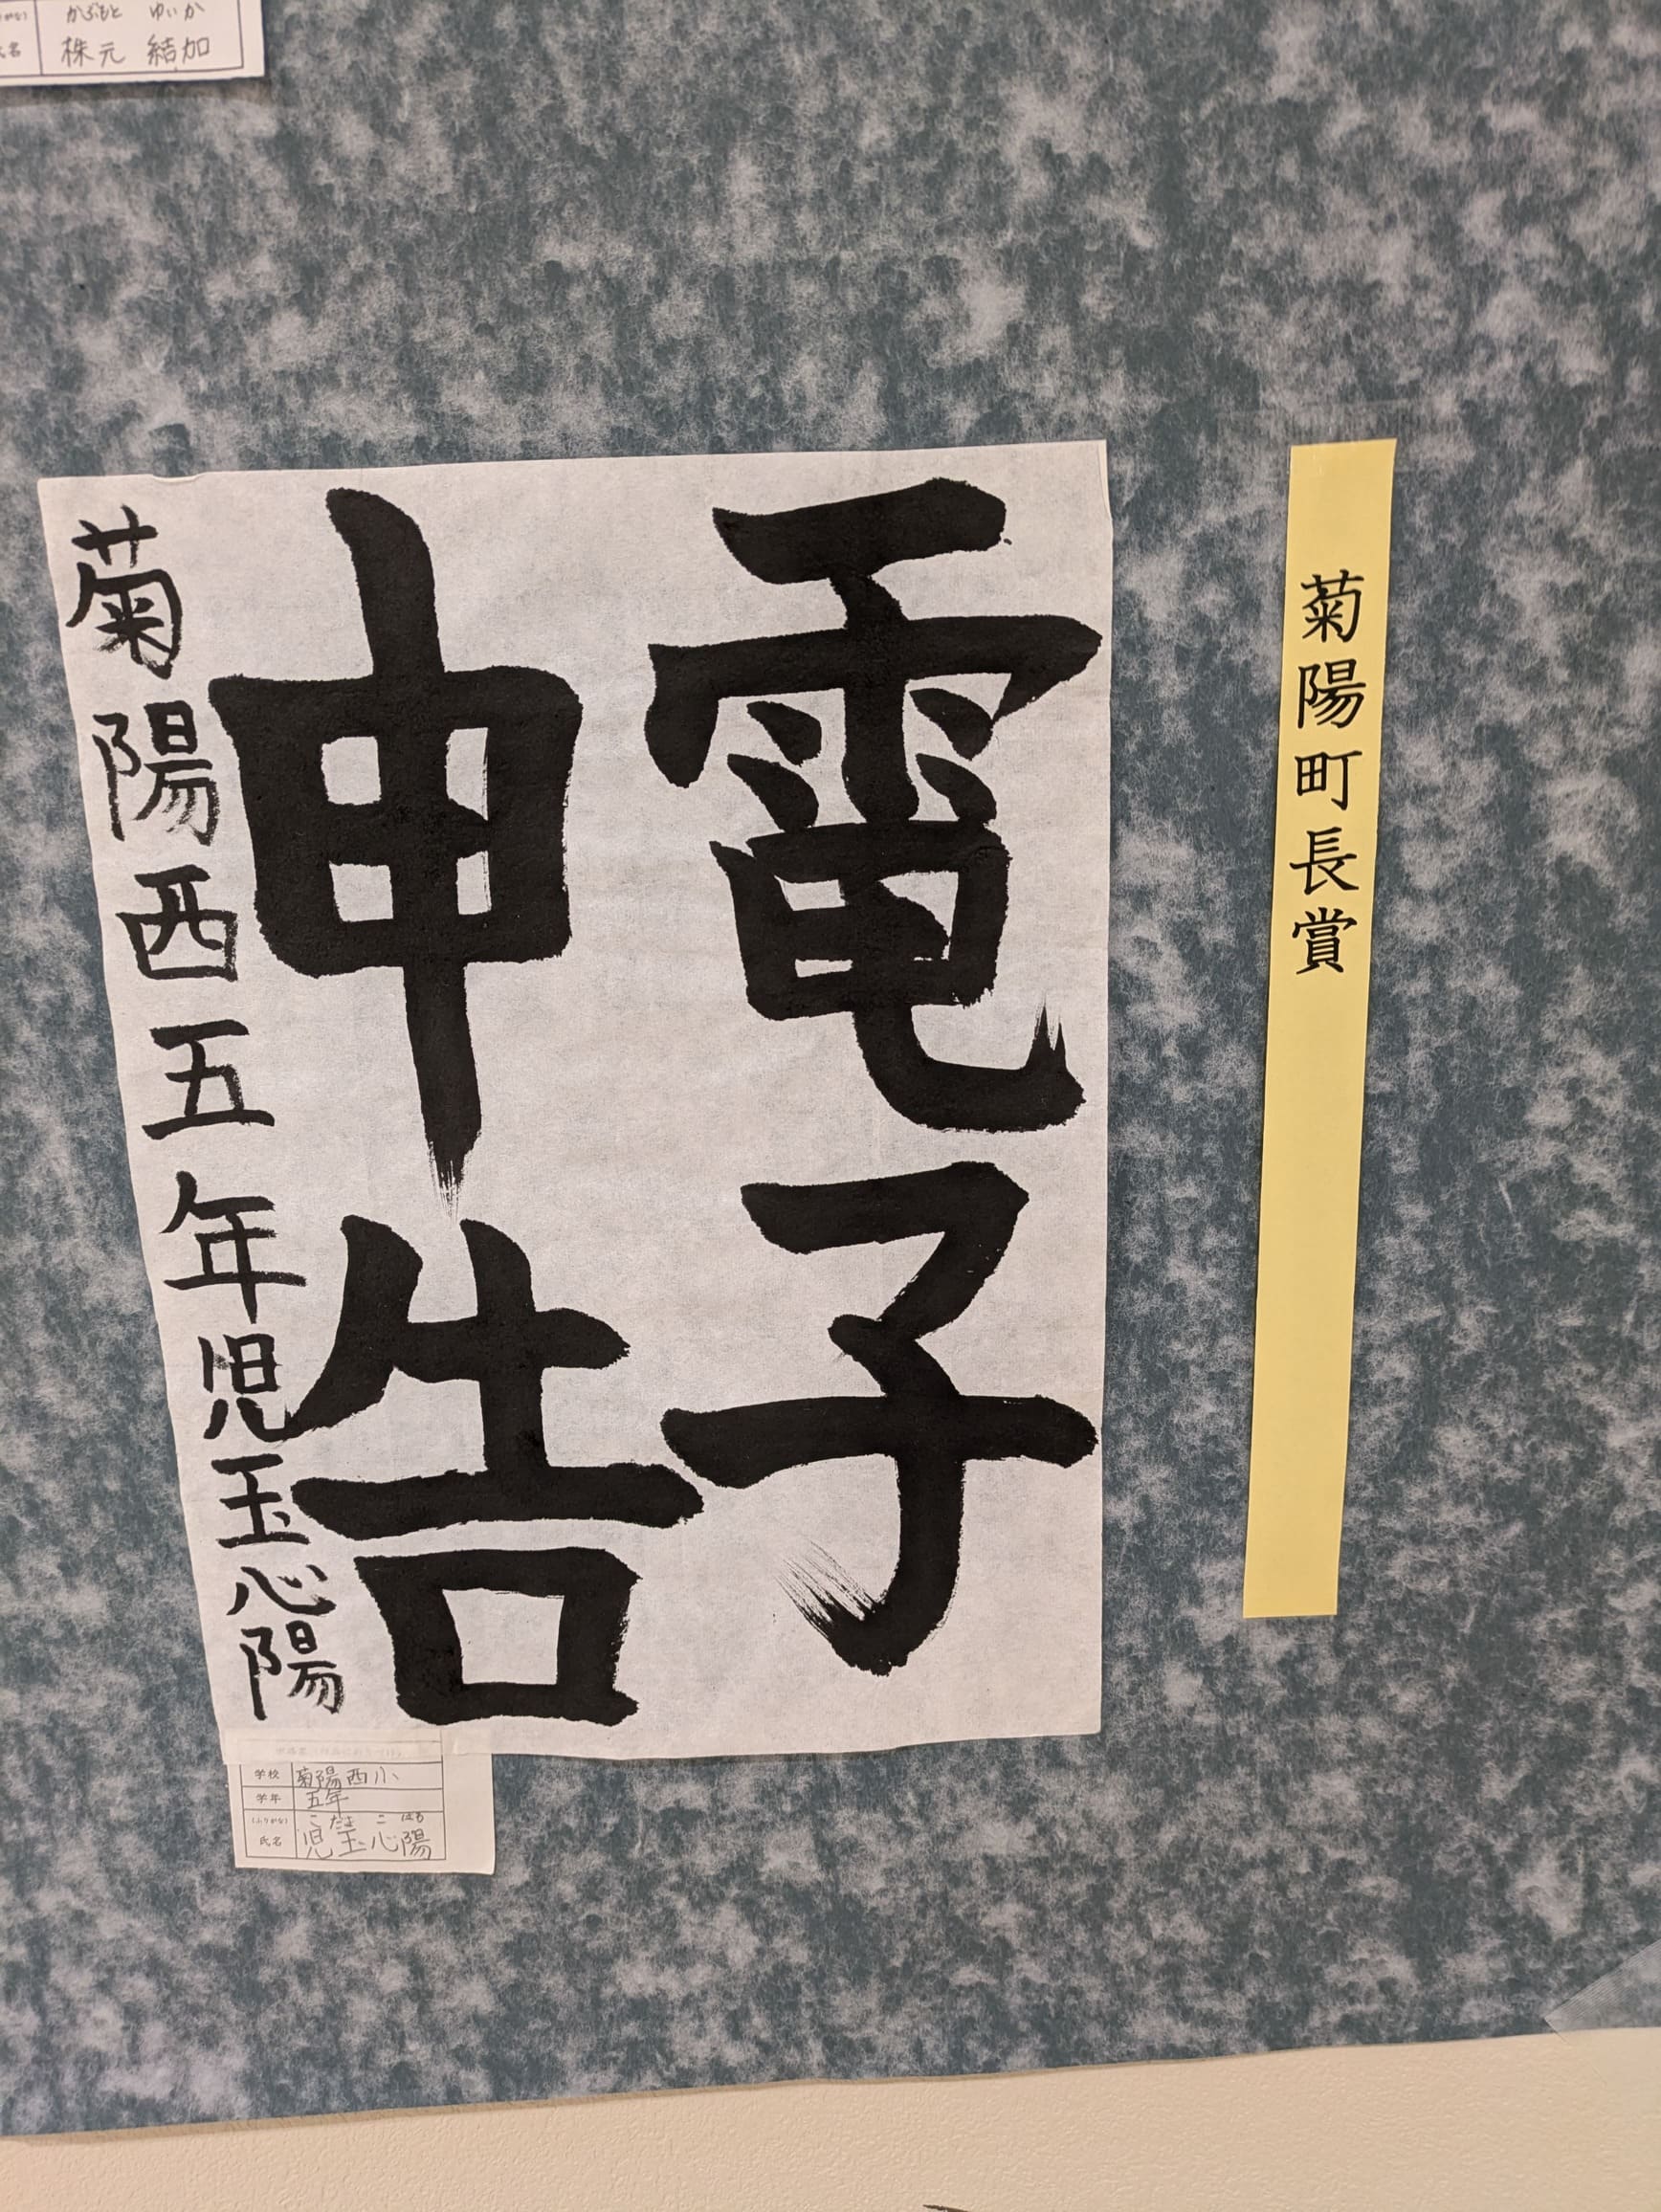 かぶもと ゆいか
氏名 株元 結加
菊陽町長賞
電子
申告
菊陽西五年児玉心陽
学校 菊陽西小
学年 五年
(ふりがな) こだま こはる
氏名 児玉心陽